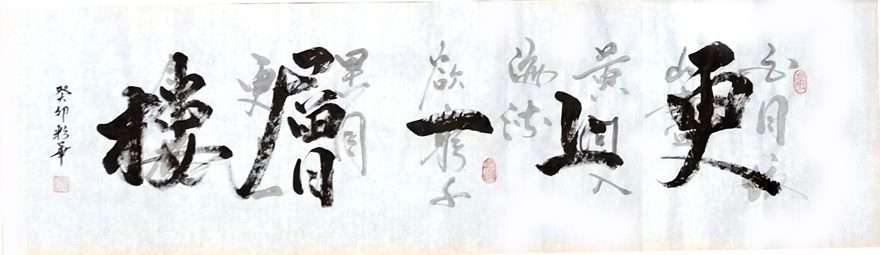 更上一層樓
白日依
山盡
黃河入
海流
欲窮千
里目
更
癸卯彩華